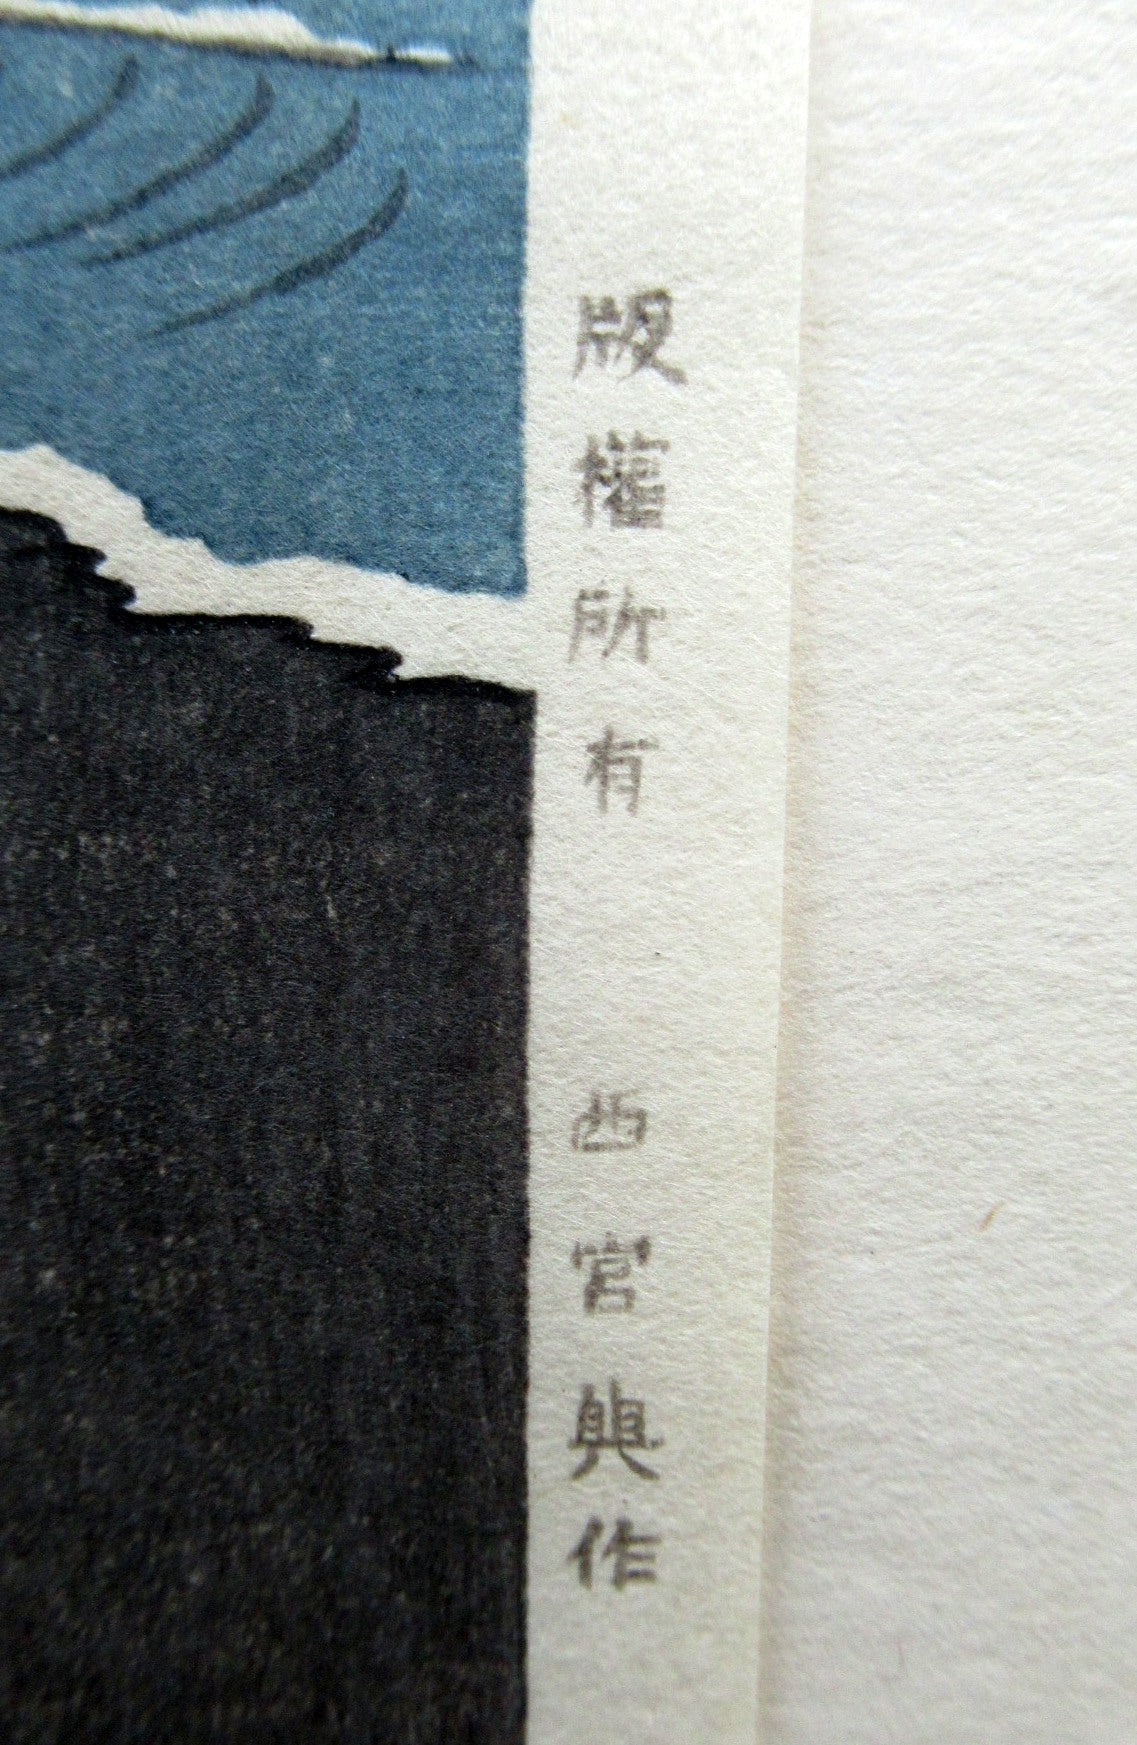 版權所有 西宮與作